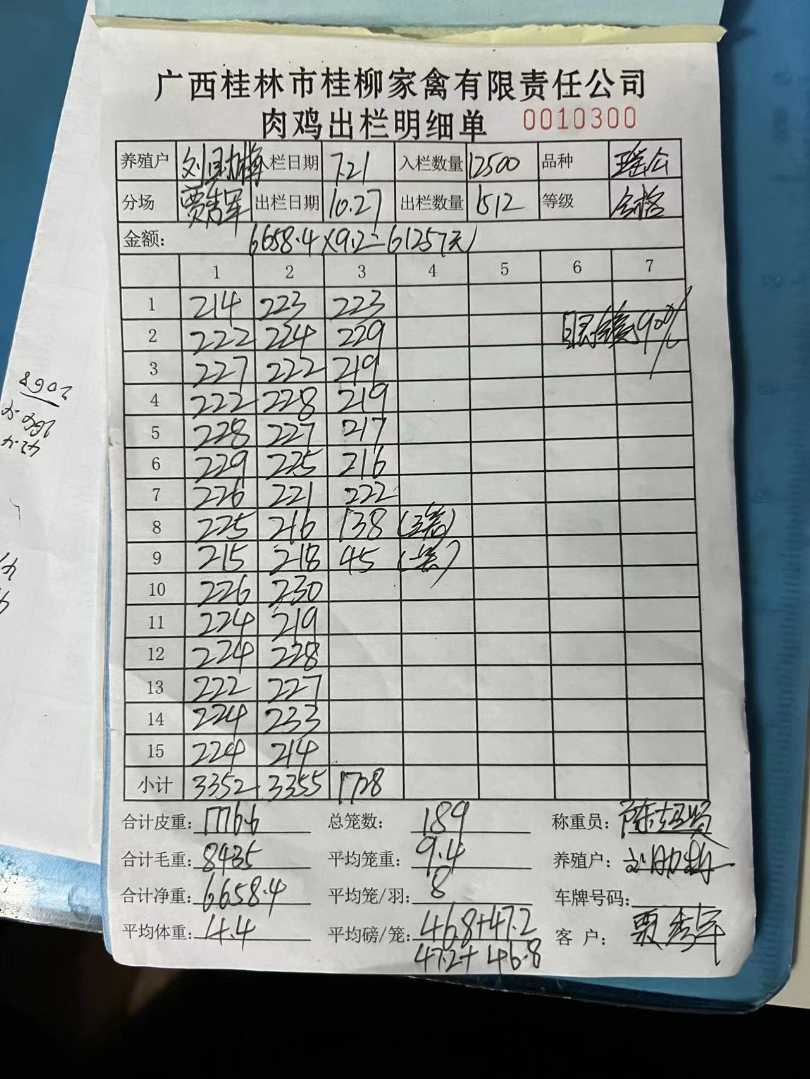 广西桂林市桂柳家禽有限责任公司
肉鸡出栏明细单 0010300
养殖户 入栏日期 7.21 入栏数量 12500 品种 瑶公
分场 贾秀军 出栏日期 10.27 出栏数量 1512 等级 合格
金额: 6658.4×9.2=61257元
1 2 3 4 5 6 7
1 214 223 223
2 222 224 229 90%
3 227 222 219
4 222 228 219
5 228 227 217
6 229 225 216
7 226 221 222
8 225 216 138 (3笼)
9 215 218 45 (一笼)
10 226 230
11 224 219
12 224 228
13 222 227
14 224 233
15 224 214
小计 3352 3355 1728
合计皮重: 1776.6 总笼数: 189 称重员:
合计毛重: 8435 平均笼重: 9.4 养殖户:
合计净重: 6658.4 平均笼/羽: 8 车牌号码:
平均体重: 4.4 平均磅/笼: 46.8+47.2 客户: 贾秀军
47.2+46.8